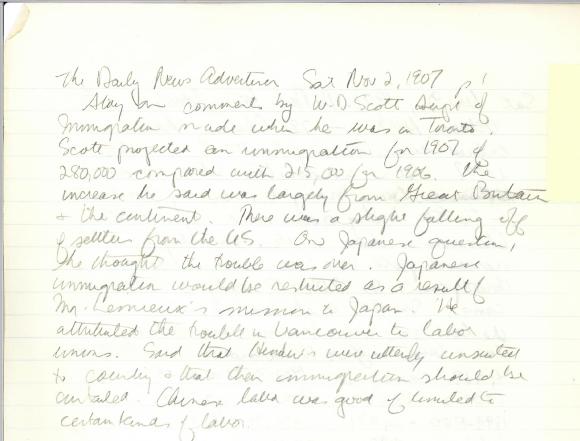 The Daily News Advertiser Sat Nov 2, 1907 p 1
Story on comments by W.D. Scott Supt of
Immigration made when he was in Toronto.
Scott projected an immigration for 1907 of
280,000 compared with 215,000 for 1906. The
increase he said was largely from Great Britain
+ the continent. There was a slight falling off
of settlers from the US. On Japanese question,
he thought the trouble was over. Japanese
immigration would be restricted as a result of
Mr. Lemieux's mission to Japan. He
attributed the trouble in Vancouver to labor
unions. Said that Hindu's were utterly unsuited
to country + that their immigration should be
curtailed. Chinese labor was good if limited to
certain kinds of labor.